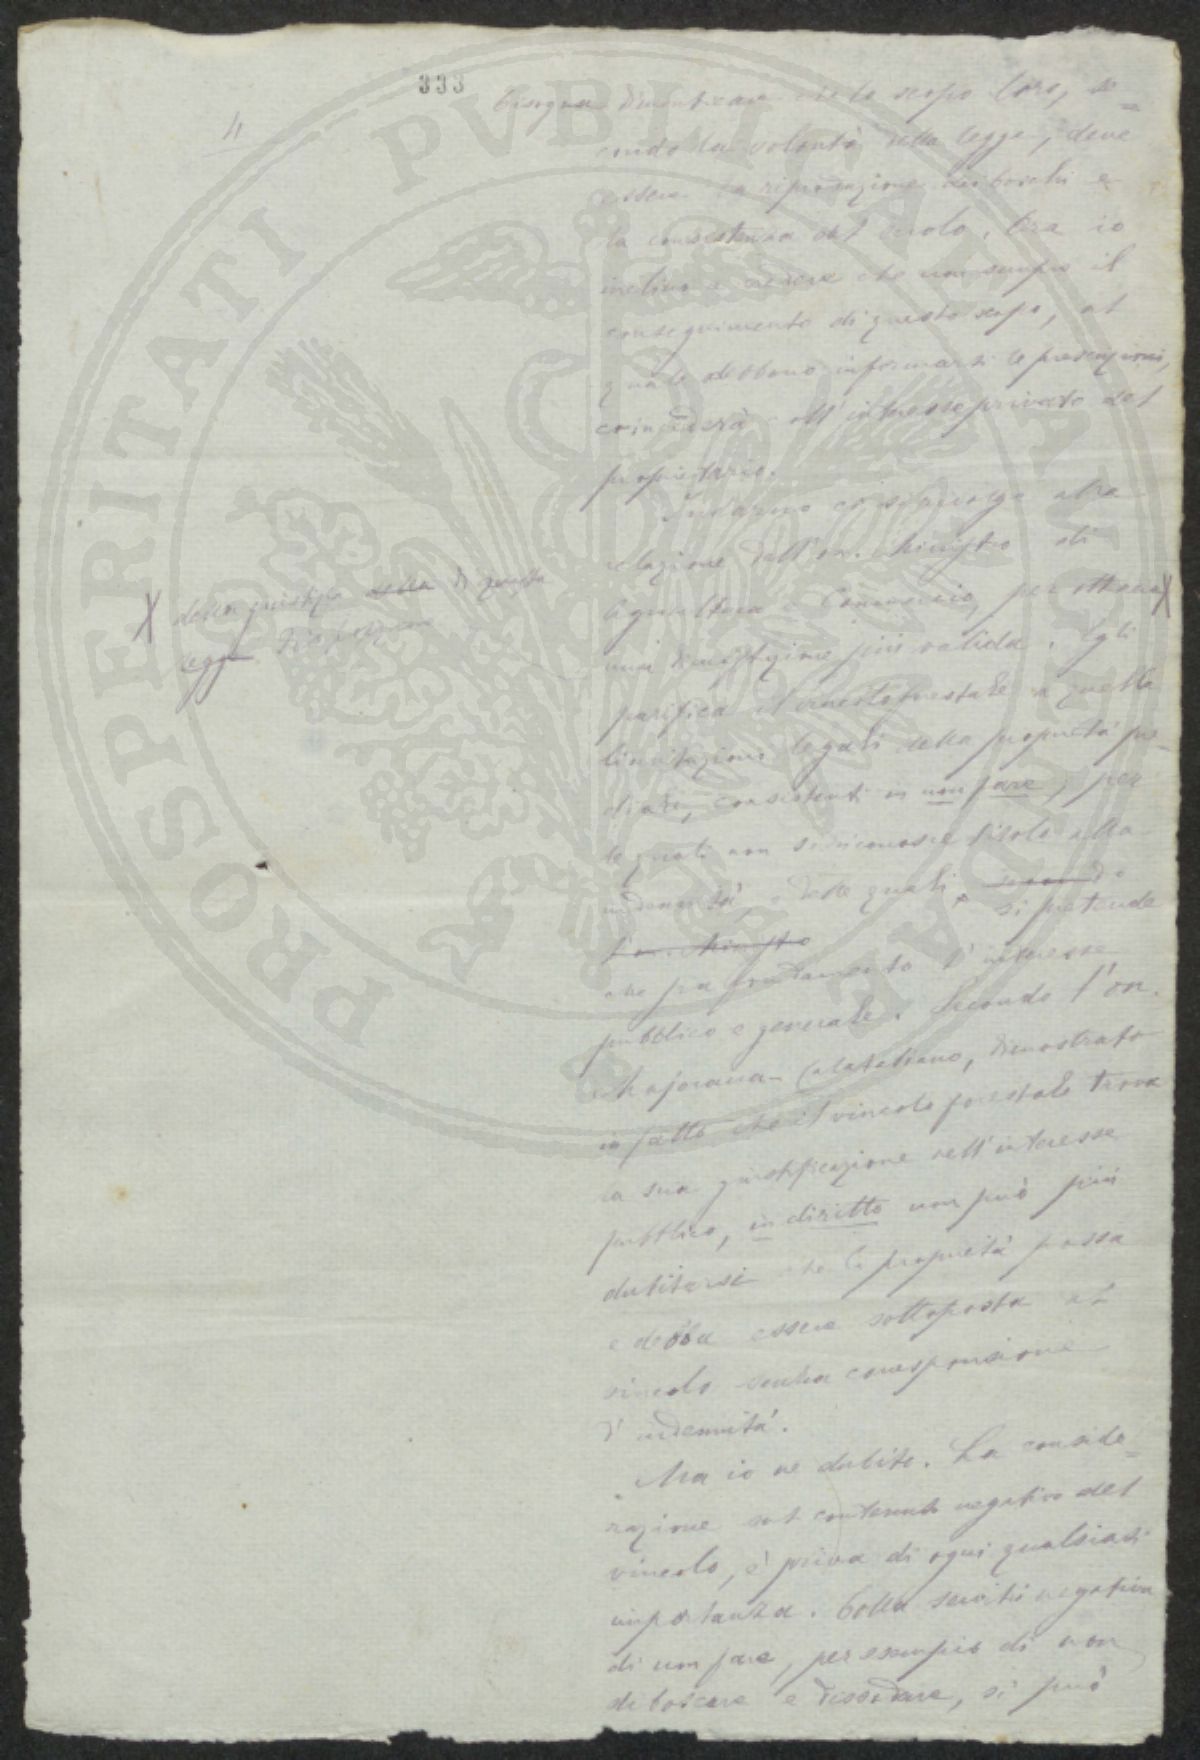 333
4
bisogna dimenticare che lo scopo loro, se=
condo la volontà della legge, deve
essere la riproduzione dei boschi e
la consistenza del suolo. Ora io
inclino a credere che non sempre il
conseguimento di questo scopo, al
quale debbono informarsi le prescrizioni,
coinciderà coll'interesse privato del
proprietario.
Indarno ci si rivolge alla
relazione dell'on. Ministro di
Agricoltura e Commercio, per ottenere X
X della giustizia della di questa
legge
una dimostrazione più valida. Egli
parifica il vincolo forestale a quelle
limitazioni legali della proprietà pre=
diale, consistenti in non fare, per
le quali non si riconosce titolo alla
indennità, e delle quali, secondo
si pretende
l'on. Ministro
che fra fondamento l'interesse
pubblico e generale. Secondo l'on.
Majorana-Calatabiano, dimostrato
in fatto che il vincolo forestale trova
la sua giustificazione nell'interesse
pubblico, in diritto non può più
dubitarsi che la proprietà possa
e debba essere sottoposta al
vincolo senza corresponsione
d'indennità.
Ma io ne dubito. La conside=
razione sul contenuto negativo del
vincolo, è priva di ogni qualsiasi
importanza. Colla servitù negativa
di non fare, per esempio di non
diboscare e dissodare, si può
PROSPERITATI PVBLICAE AVGENDAE